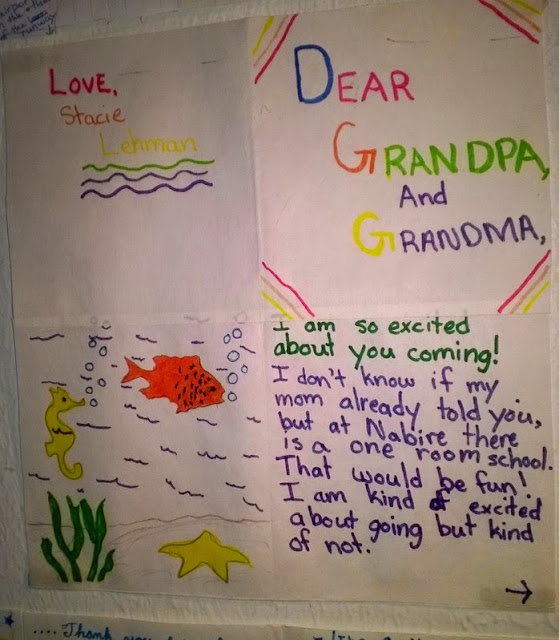 LOVE,
Stacie
Lehman
DEAR
GRANDPA,
And
GRANDMA,
I am so excited
about you coming!
I don't know if my
mom already told you,
but at Nabire there
is a one room school.
That would be fun!
I am kind of excited
about going but kind
of not.
.... Thank you